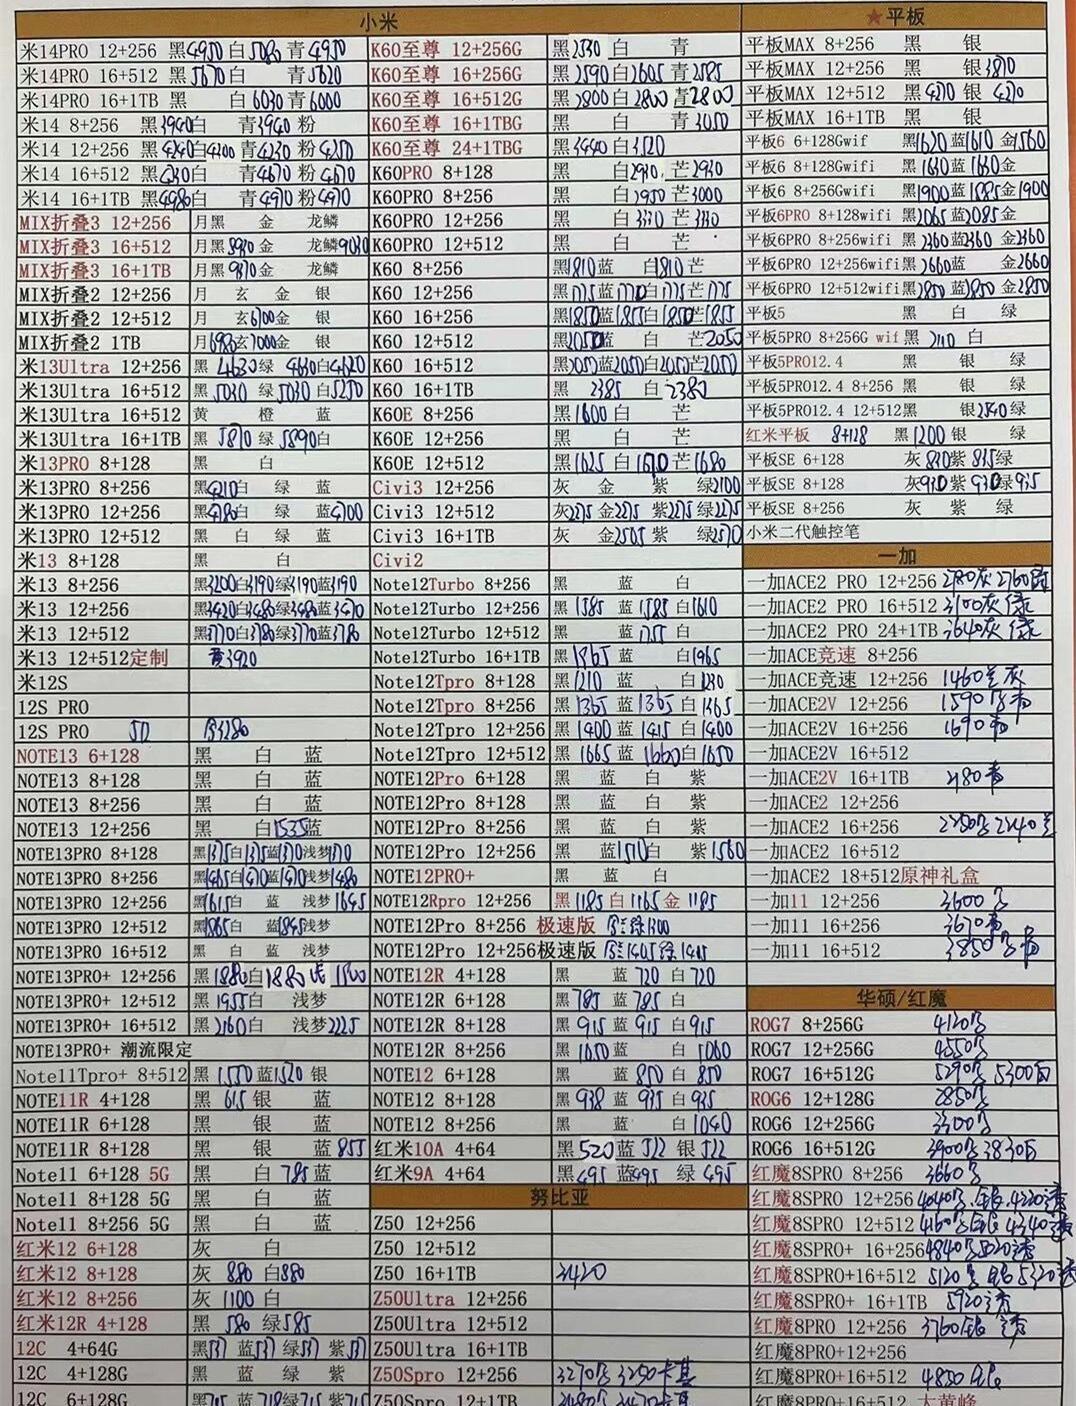 小米
米14PRO 12+256 黑4950 白5080 青4950
米14PRO 16+512 黑5670 白 青5620
米14PRO 16+1TB 黑 白6030 青6000
米14 8+256 黑3940 白 青3940 粉
米14 12+256 黑4240 白4200 青4230 粉4250
米14 16+512 黑 白 青4670 粉4670
米14 16+1TB 黑4980 白 青4970 粉4970
MIX折叠3 12+256 月黑 金 龙鳞
MIX折叠3 16+512 月黑 金 龙鳞
MIX折叠3 16+1TB 月黑 金 龙鳞
MIX折叠2 12+256 月 玄 金 银
MIX折叠2 12+512 月 玄6700 金 银
MIX折叠2 1TB 月 玄7000 金 银
米13Ultra 12+256 黑4630 绿4630 白4620
米13Ultra 16+512 黑5030 绿5030 白5250
米13Ultra 16+512 黄 橙 蓝
米13Ultra 16+1TB 黑5870 绿5890 白
米13PRO 8+128 黑 白
米13PRO 8+256 黑4210 白 绿 蓝
米13PRO 12+256 黑 白 绿 蓝
米13PRO 12+512 黑 白 绿 蓝
米13 8+128 黑 白
米13 8+256 黑3200 白3190 绿3190 蓝3190
米13 12+256 黑3420 白3480 绿3480 蓝3470
米13 12+512 黑3770 白3780 绿3770 蓝3780
米13 12+512定制 黄3920
米12S
12S PRO
12S PRO
NOTE13 6+128 黑 白 蓝
NOTE13 8+128 黑 白 蓝
NOTE13 8+256 黑 白 蓝
NOTE13 12+256 黑 白1535 蓝
NOTE13PRO 8+128 黑1375 白1375 蓝1370 浅梦1370
NOTE13PRO 8+256 黑1465 白1470 蓝1470 浅梦1480
NOTE13PRO 12+256 黑1615 白 蓝 浅梦1645
NOTE13PRO 12+512 黑1865 白 蓝1845 浅梦
NOTE13PRO 16+512 黑 白 蓝 浅梦
NOTE13PRO+ 12+256 黑1880 白1880
NOTE13PRO+ 12+512 黑1955 白 浅梦
NOTE13PRO+ 16+512 黑2160 白 浅梦2225
NOTE13PRO+ 潮流限定
Note11Tpro+ 8+512 黑1550 蓝1520 银
NOTE11R 4+128 黑615 银 蓝
NOTE11R 6+128 黑 银 蓝
NOTE11R 8+128 黑 银 蓝855
Note11 6+128 5G 黑 白785 蓝
Note11 8+128 5G 黑 白 蓝
Note11 8+256 5G 黑 白 蓝
红米12 6+128 灰 白
红米12 8+128 灰880 白880
红米12 8+256 灰1100 白
红米12R 4+128 黑580 绿585
12C 4+64G 黑 蓝 绿 紫
12C 4+128G 黑 蓝 绿 紫
12C 6+128G 黑715 蓝718 绿715 紫715
K60至尊 12+256G 黑2530 白 青
K60至尊 16+256G 黑2590 白2605 青2585
K60至尊 16+512G 黑2800 白2800 青2800
K60至尊 16+1TBG 黑 白 青3050
K60至尊 24+1TBG 黑3440 白3520
K60PRO 8+128 黑 白2930 芒2930
K60PRO 8+256 黑 白2950 芒3000
K60PRO 12+256 黑 白3330 芒3330
K60PRO 12+512 黑 白 芒
K60 8+256 黑1810 蓝 白1810 芒
K60 12+256 黑1775 蓝1770 白1775 芒1775
K60 16+256 黑1850 蓝1855 白1850 芒1855
K60 12+512 黑2050 蓝 白 芒2050
K60 16+512 黑2050 蓝2050 白2050 芒2050
K60 16+1TB 黑2385 白2380
K60E 8+256 黑1600 白 芒
K60E 12+256 黑 白 芒
K60E 12+512 黑1625 白1670 芒1680
Civi3 12+256 灰 金 紫 绿2100
Civi3 12+512 灰2275 金2275 紫2275 绿2275
Civi3 16+1TB 灰 金2505 紫 绿2570
Civi2
Note12Turbo 8+256 黑 蓝 白
Note12Turbo 12+256 黑1585 蓝1585 白1610
Note12Turbo 12+512 黑 蓝1755 白
Note12Turbo 16+1TB 黑1965 蓝 白1965
Note12Tpro 8+128 黑1210 蓝 白1230
Note12Tpro 8+256 黑1365 蓝1365 白1365
Note12Tpro 12+256 黑1400 蓝1415 白1400
Note12Tpro 12+512 黑1665 蓝1660 白1650
NOTE12Pro 6+128 黑 蓝 白 紫
NOTE12Pro 8+128 黑 蓝 白 紫
NOTE12Pro 8+256 黑 蓝 白 紫
NOTE12Pro 12+256 黑 蓝1510 白 紫1560
NOTE12PRO+ 黑 蓝 白
NOTE12Rpro 12+256 黑1185 白1165 金1185
NOTE12Pro 8+256 极速版
NOTE12Pro 12+256极速版
NOTE12R 4+128 黑 蓝720 白720
NOTE12R 6+128 黑785 蓝785 白
NOTE12R 8+128 黑915 蓝915 白915
NOTE12R 8+256 黑1050 蓝 白1060
NOTE12 6+128 黑 蓝850 白850
NOTE12 8+128 黑938 蓝935 白935
NOTE12 8+256 黑 蓝 白1040
红米10A 4+64 黑520 蓝522 银522
红米9A 4+64 黑495 蓝495 绿495
努比亚
Z50 12+256
Z50 12+512
Z50 16+1TB 2420
Z50Ultra 12+256
Z50Ultra 12+512
Z50Ultra 16+1TB
Z50Spro 12+256
Z50Spro 12+1TB
★平板
平板MAX 8+256 黑 银
平板MAX 12+256 黑 银3870
平板MAX 12+512 黑4270 银4270
平板MAX 16+1TB 黑 银
平板6 6+128Gwif 黑1620 蓝1610 金1560
平板6 8+128Gwif 黑1630 蓝1630 金
平板6 8+256Gwif 黑1900 蓝1885 金1900
平板6PRO 8+128wifi 黑2065 蓝2085 金
平板6PRO 8+256wifi 黑2360 蓝2360 金2360
平板6PRO 12+256wifi 黑2660 蓝 金2660
平板6PRO 12+512wifi 黑2850 蓝2850 金2850
平板5 黑 白 绿
平板5PRO 8+256G wif 黑2110 白
平板5PRO12.4 黑 银 绿
平板5PRO12.4 8+256 黑 银 绿
平板5PRO12.4 12+512 黑 银2840 绿
红米平板 8+128 黑1200 银 绿
平板SE 6+128 灰810 紫815 绿
平板SE 8+128 灰930 紫930 绿935
平板SE 8+256 灰 紫 绿
小米二代触控笔
一加
一加ACE2 PRO 12+256 2780灰 2760
一加ACE2 PRO 16+512 3100灰 绿
一加ACE2 PRO 24+1TB 3640灰 绿
一加ACE竞速 8+256
一加ACE竞速 12+256 1460兰灰
一加ACE2V 12+256 1590
一加ACE2V 16+256 1690
一加ACE2V 16+512
一加ACE2V 16+1TB 2180
一加ACE2 12+256
一加ACE2 16+256 2240
一加ACE2 16+512
一加ACE2 18+512原神礼盒
一加11 12+256 3600
一加11 16+256 3670
一加11 16+512 3850
华硕/红魔
ROG7 8+256G 4120
ROG7 12+256G 4550
ROG7 16+512G 5290 5300白
ROG6 12+128G 2850
ROG6 12+256G 3300
ROG6 16+512G 3900 3830白
红魔8SPRO 8+256 3660
红魔8SPRO 12+256 4040
红魔8SPRO 12+512 4160
红魔8SPRO+ 16+256 4840
红魔8SPRO+16+512 5120
红魔8SPRO+ 16+1TB 5920透
红魔8PRO 12+256 3760银 透
红魔8PRO+12+256
红魔8PRO+16+512 4850
红魔8PRO+16+512 大黄蜂